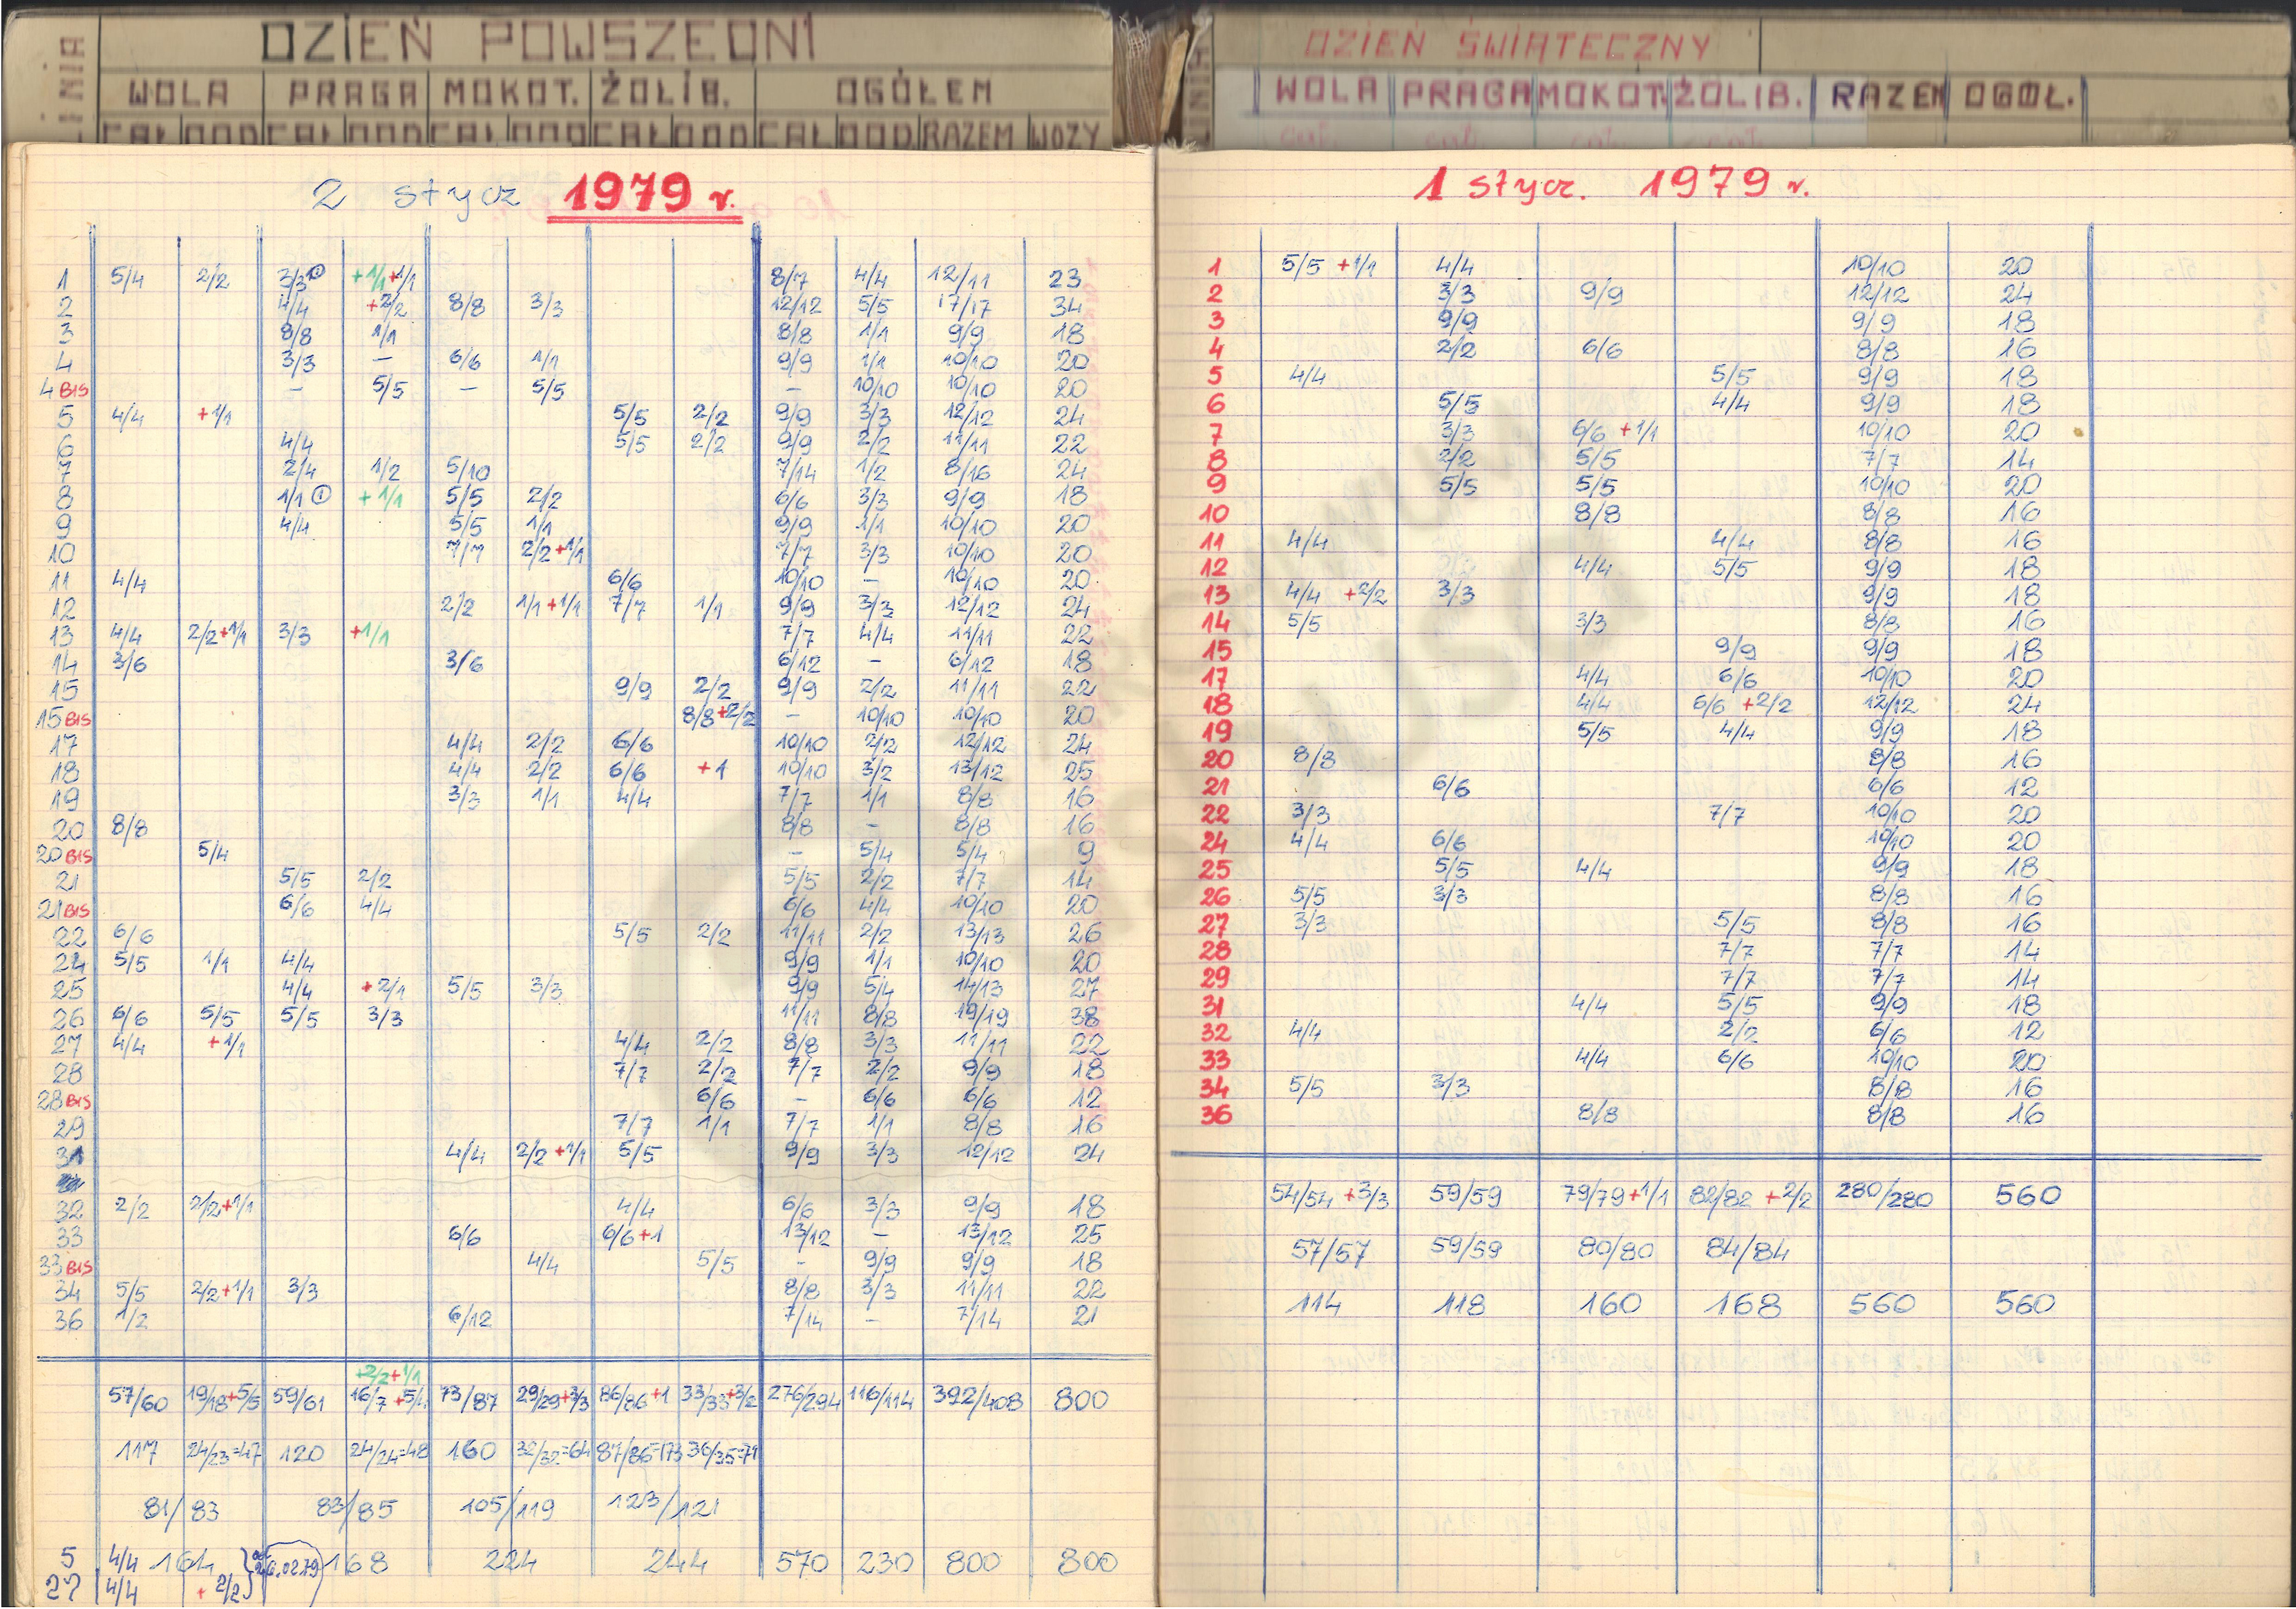 LINIA DZIEŃ POWSZEDNI
WOLA PRAGA MOKOT. ŻOLIB. OGÓŁEM
CAŁ DOD CAŁ DOD CAŁ DOD CAŁ DOD CAŁ DOD RAZEM WOZY
2 stycz 1979 r.
1 5/4 2/2 3/3 ① +1/1 +1/1 8/7 4/4 12/11 23
2 4/4 +2/2 8/8 3/3 12/12 5/5 17/17 34
3 8/8 1/1 8/8 1/1 9/9 18
4 3/3 – 6/6 1/1 9/9 1/1 10/10 20
4 BIS – 5/5 – 5/5 – 10/10 10/10 20
5 4/4 +1/1 5/5 2/2 9/9 3/3 12/12 24
6 4/4 5/5 2/2 9/9 2/2 11/11 22
7 2/4 1/2 5/10 7/14 1/2 8/16 24
8 1/1 ① +1/1 5/5 2/2 6/6 3/3 9/9 18
9 4/4 5/5 1/1 9/9 1/1 10/10 20
10 7/7 2/2+1/1 7/7 3/3 10/10 20
11 4/4 6/6 10/10 – 10/10 20
12 2/2 1/1+1/1 7/7 1/1 9/9 3/3 12/12 24
13 4/4 2/2+1/1 3/3 +1/1 7/7 4/4 11/11 22
14 3/6 3/6 6/12 – 6/12 18
15 9/9 2/2 9/9 2/2 11/11 22
15 BIS 8/8+2/2 – 10/10 10/10 20
17 4/4 2/2 6/6 10/10 2/2 12/12 24
18 4/4 2/2 6/6 +1 10/10 3/2 13/12 25
19 3/3 1/1 4/4 7/7 1/1 8/8 16
20 8/8 8/8 – 8/8 16
20 BIS 5/4 – 5/4 5/4 9
21 5/5 2/2 5/5 2/2 7/7 14
21 BIS 6/6 4/4 6/6 4/4 10/10 20
22 6/6 5/5 2/2 11/11 2/2 13/13 26
24 5/5 1/1 4/4 9/9 1/1 10/10 20
25 4/4 +2/1 5/5 3/3 9/9 5/4 14/13 27
26 6/6 5/5 5/5 3/3 11/11 8/8 19/19 38
27 4/4 +1/1 4/4 2/2 8/8 3/3 11/11 22
28 7/7 2/2 7/7 2/2 9/9 18
28 BIS 6/6 – 6/6 6/6 12
29 7/7 1/1 7/7 1/1 8/8 16
31 4/4 2/2 +1/1 5/5 9/9 3/3 12/12 24
32 2/2 2/2+1/1 4/4 6/6 3/3 9/9 18
33 6/6 6/6+1 13/12 – 13/12 25
33 BIS 4/4 5/5 – 9/9 9/9 18
34 5/5 2/2+1/1 3/3 8/8 3/3 11/11 22
36 1/2 6/12 7/14 – 7/14 21
+2/2+1/1
57/60 19/18+5/5 59/61 16/7 +5/4 73/87 29/29+3/3 86/86+1 33/33+3/2 276/294 116/114 392/408 800
117 24/23=47 120 24/24=48 160 32/32=64 87/86=173 36/35=71
81/83 83/85 105/119 123/121
5 4/4 164 26.02.79 168 224 244 570 230 800 800
27 4/4 + 2/2
DZIEŃ ŚWIĄTECZNY
WOLA PRAGA MOKOT. ŻOLIB. RAZEM OGÓŁ.
1 stycz. 1979 r.
1 5/5 +1/1 4/4 10/10 20
2 3/3 9/9 12/12 24
3 9/9 9/9 18
4 2/2 6/6 8/8 16
5 4/4 5/5 9/9 18
6 5/5 4/4 9/9 18
7 3/3 6/6 +1/1 10/10 20
8 2/2 5/5 7/7 14
9 5/5 5/5 10/10 20
10 8/8 8/8 16
11 4/4 4/4 8/8 16
12 4/4 5/5 9/9 18
13 4/4 +2/2 3/3 9/9 18
14 5/5 3/3 8/8 16
15 9/9 9/9 18
17 4/4 6/6 10/10 20
18 4/4 6/6 +2/2 12/12 24
19 5/5 4/4 9/9 18
20 8/8 8/8 16
21 6/6 6/6 12
22 3/3 7/7 10/10 20
24 4/4 6/6 10/10 20
25 5/5 4/4 9/9 18
26 5/5 3/3 8/8 16
27 3/3 5/5 8/8 16
28 7/7 7/7 14
29 7/7 7/7 14
31 4/4 5/5 9/9 18
32 4/4 2/2 6/6 12
33 4/4 6/6 10/10 20
34 5/5 3/3 8/8 16
36 8/8 8/8 16
54/54 +3/3 59/59 79/79+1/1 82/82 +2/2 280/280 560
57/57 59/59 80/80 84/84
114 118 160 168 560 560